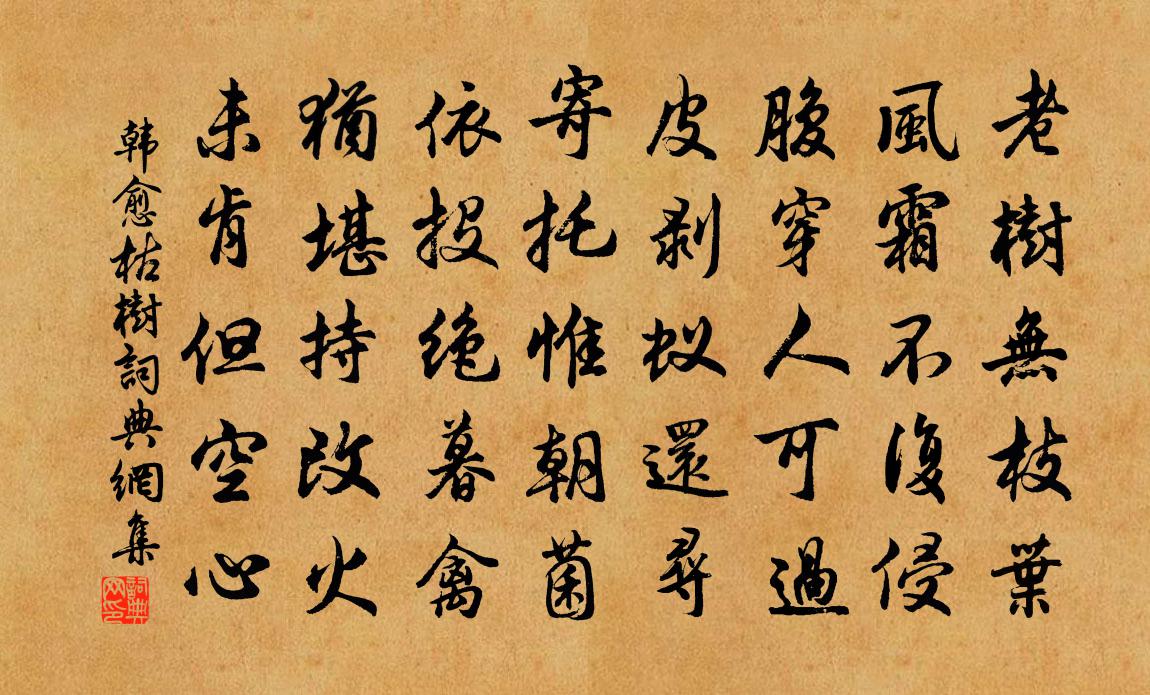 老樹無枝葉
風霜不復侵
腹穿人可過
皮剥蚁還尋
寄托惟朝菌
依投绝暮禽
猶堪持改火
未肯但空心
韩愈枯樹詞典網集
詞典网印